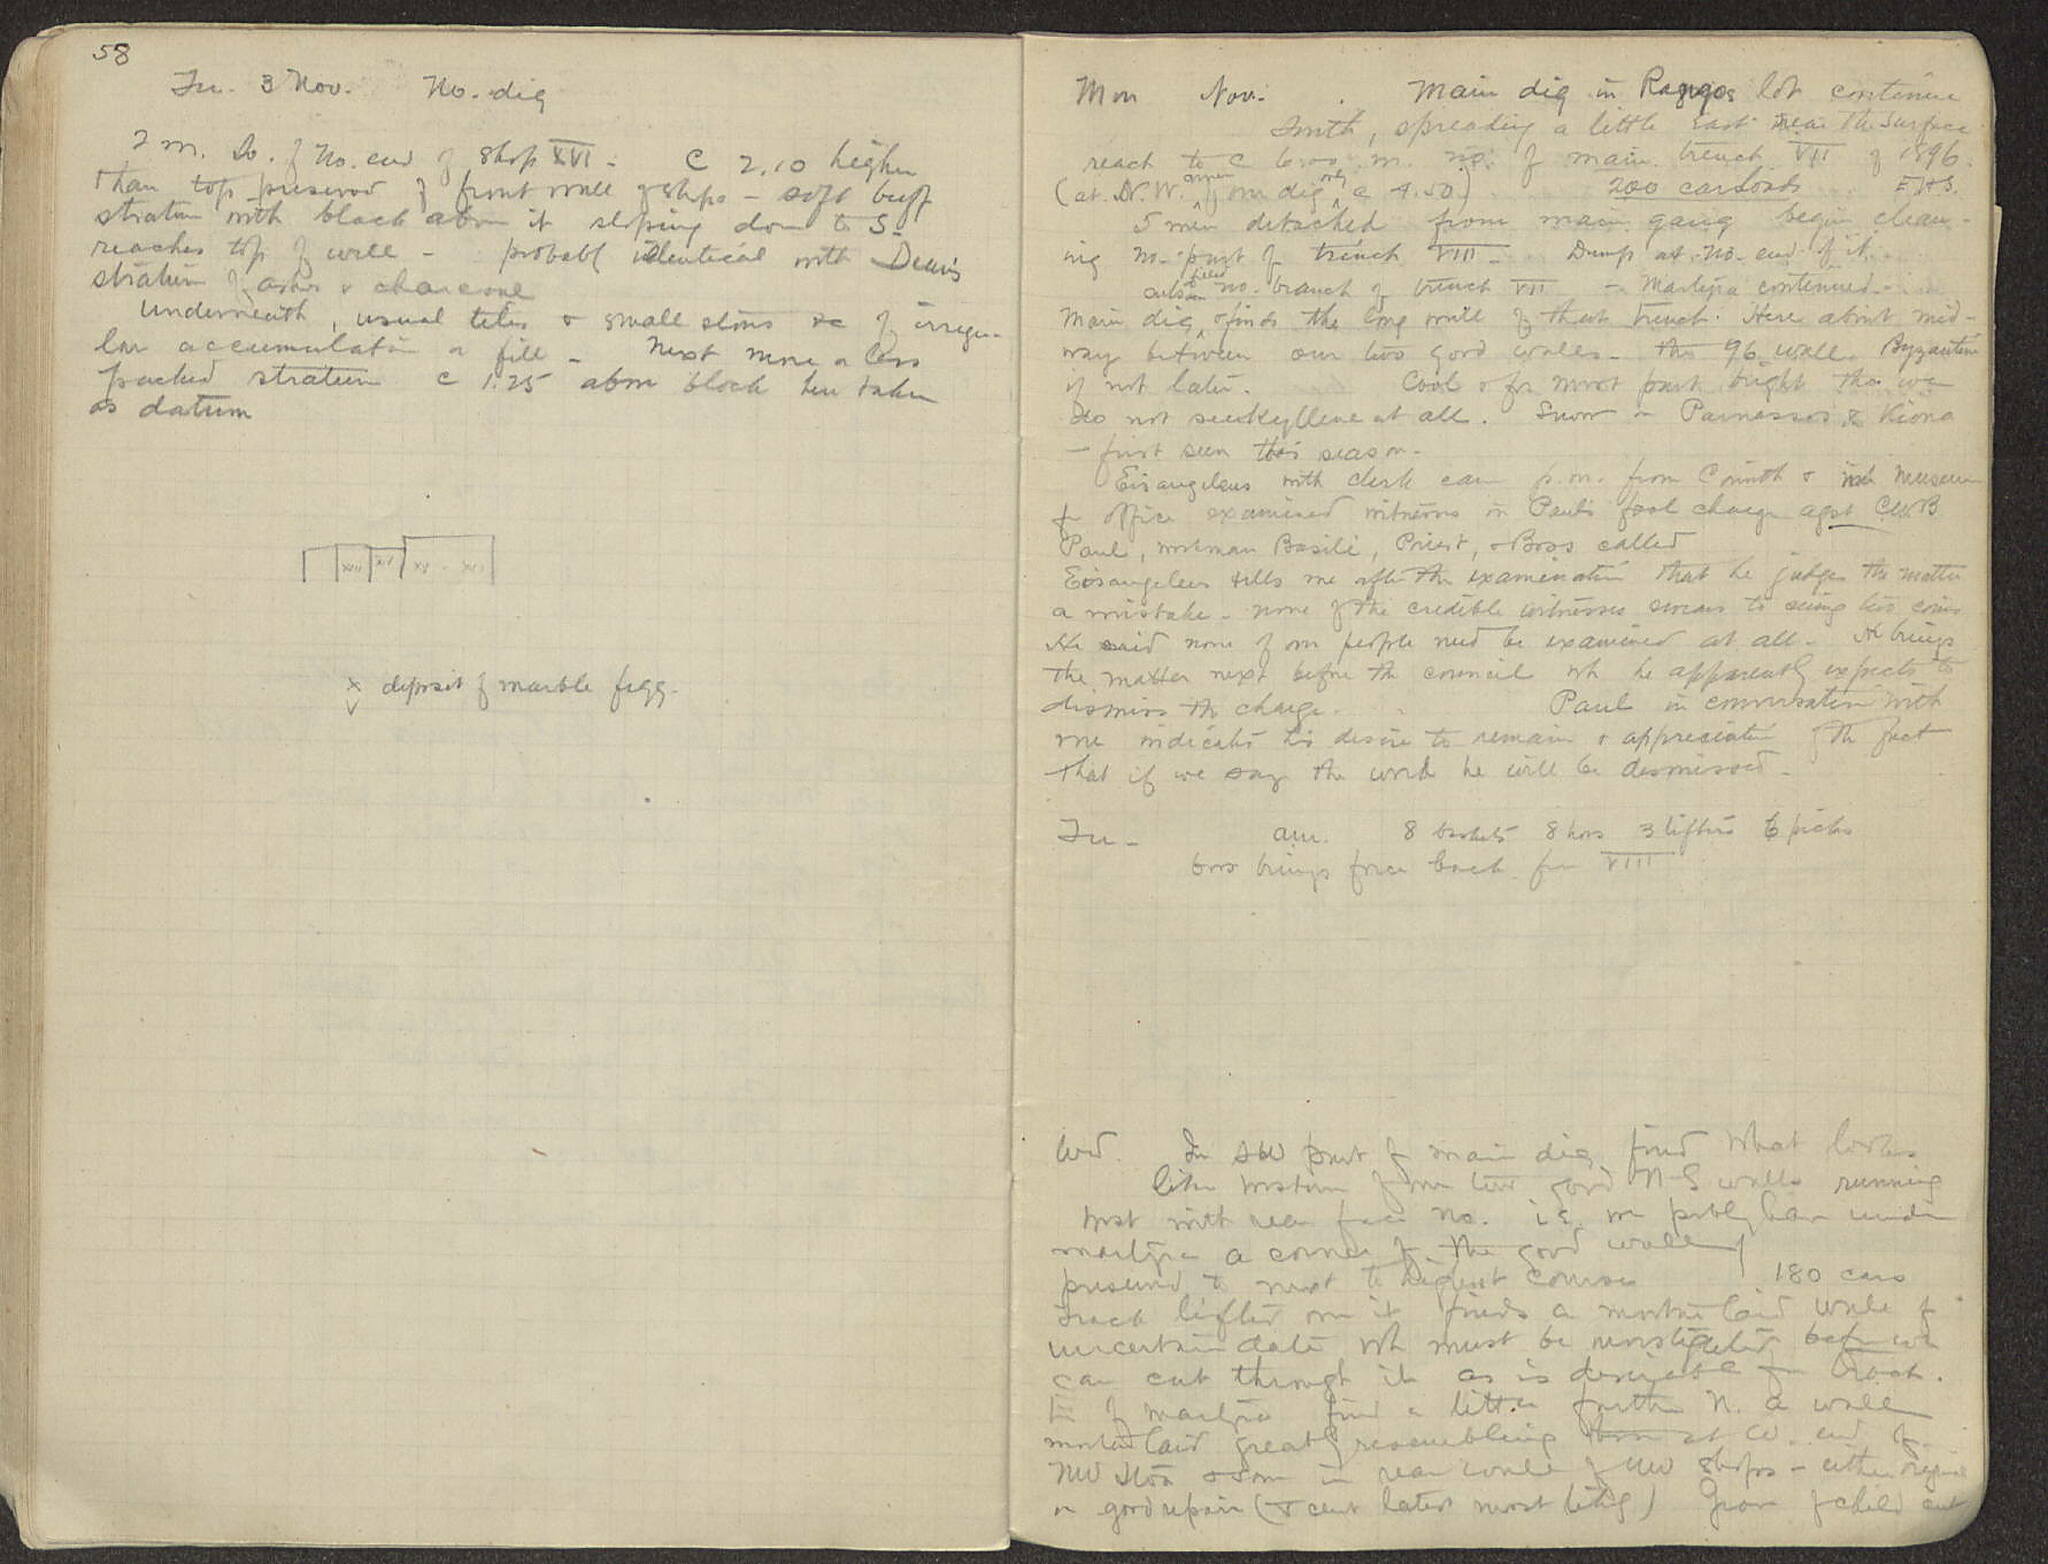 58
Tu. 3 Nov. No. dig
2 m. So. of No. end of shop XVI - c 2.10 higher
than top preserved of front wall of shops - soft buff
stratum with black above it sloping down to S.
reaches top of wall - probably identical with Dewing's
stratum of ashes & charcoal
Underneath, usual tiles & small stones &c of irregu-
lar accumulation or fill - Next more or less
packed stratum c 1.25 above block here taken
as datum
XVII XVI XV - XVI
x deposit of marble figg.
Mon Nov. Main dig in Ragros lot continue
South, spreading a little East near the surface
reach to c 6.00 m. no. of main trench VII of 1896.
(at N.W. corner of our dig only c 4.50) 200 carloads EHS.
5 men detached from main gang begin clean-
ing no. part of trench VIII - Dump at no. end of it.
filled no. branch of trench VII - Martyra continued -
Main dig & finds the long wall of that trench. Here about mid-
way between our two good walls - this 96 wall Byzantine
if not later. Cool & for most part bright tho we
do not see Kyllene at all. Snow on Parnassos & Kiona
- first seen this season -
Eisangeleus with clerk came p.m. from Corinth & in museum
& office examined witnesses in Paul's fool charge agst CWB
Paul, workman Basili, Priest, & Boss called
Eisangeleus tells me after the examination that he judges the matter
a mistake - none of the credible witnesses swears to seeing two coins
He said none of our people need be examined at all - He brings
the matter next before the council wh he apparently expects to
dismiss the charge. Paul in conversation with
me indicates his desire to remain & appreciation of the fact
that if we say the word he will be dismissed -
Tu - am. 8 baskets 8 hoes 3 lifters 6 picks
boss brings force back for VIII
Wed. In SW part of main dig find what looks
like western of our two good N-S walls running
West with rear face No. i.e. we probly have under
martyra a corner of the good wall
preserved to next to highest courses 180 cars
Track lifted on it finds a mortar laid wall of
uncertain date wh must be investigated before we
can cut through it as is desirable for track.
E of martyra find a little further N. a wall
mortar laid greatly resembling those at W. end of
NW Stoa & some in rear wall of NW shops - either original
or good repair (& cent later most likely) Grave of child cut